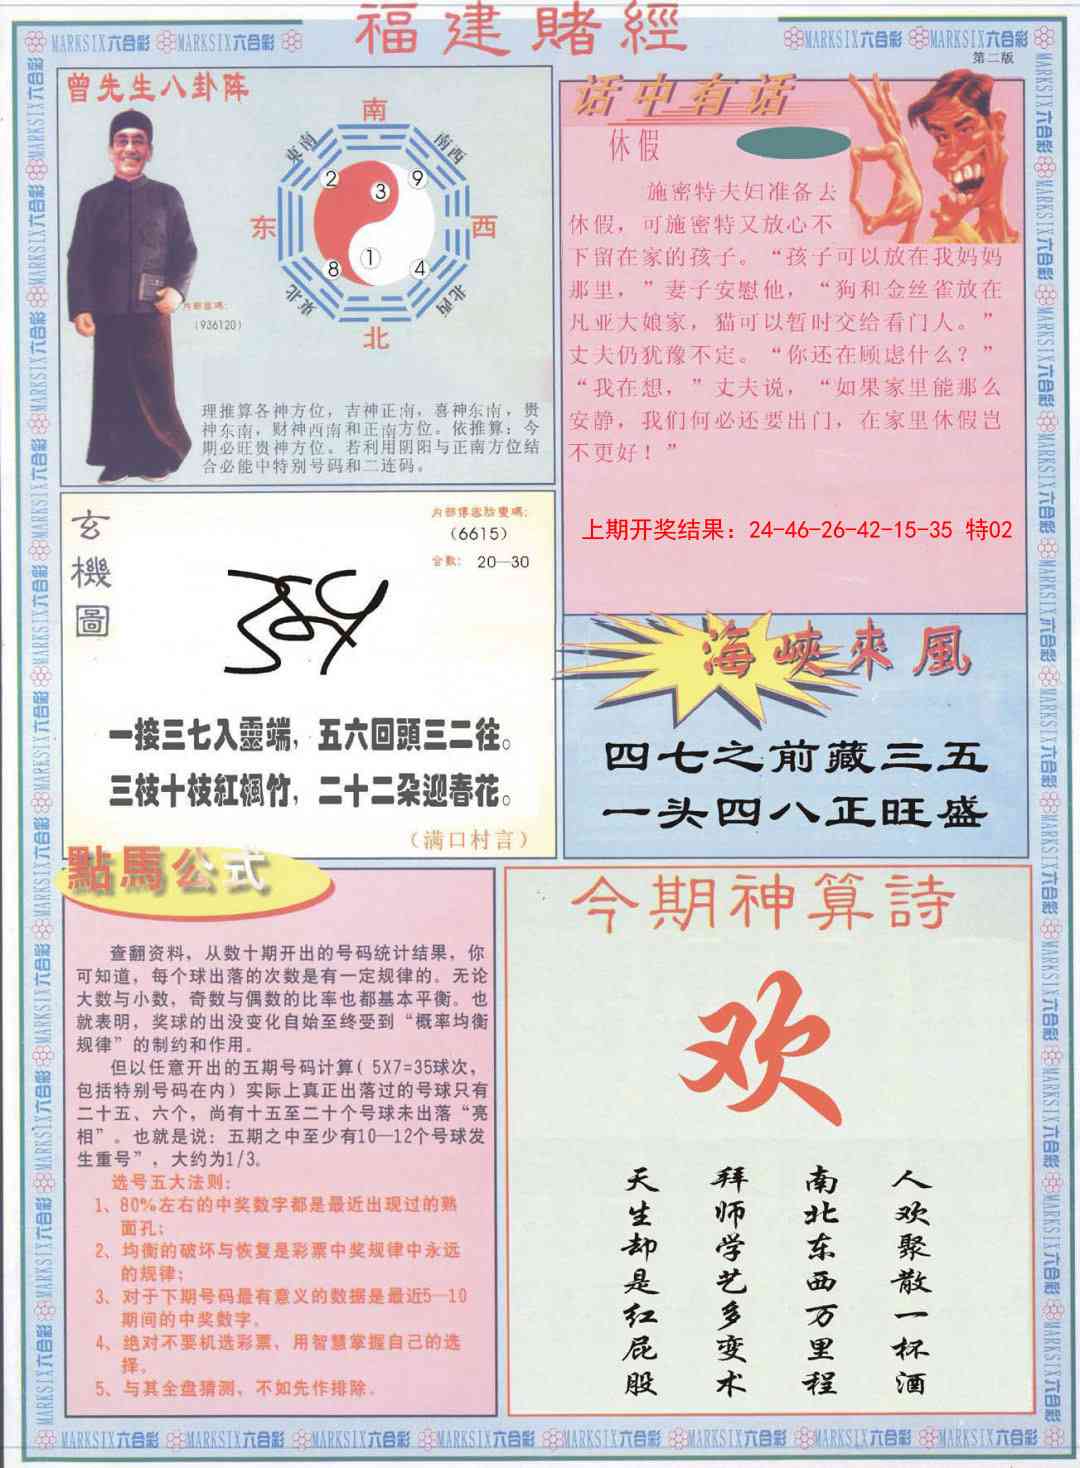 福建賭經
MARKSIX六合彩 MARKSIX六合彩 MARKSIX六合彩 MARKSIX六合彩
第二版
曾先生八卦阵
南
東南
南西
2
3
9
东
西
8
1
4
東北
北西
北
内部密碼:
(936120)
理推算各神方位，吉神正南，喜神东南，贵
神东南，财神西南和正南方位。依推算：今
期必旺贵神方位。若利用阴阳与正南方位结
合必能中特别号码和二连码。
话中有话
休假
施密特夫妇准备去
休假，可施密特又放心不
下留在家的孩子。“孩子可以放在我妈妈
那里，”妻子安慰他，“狗和金丝雀放在
凡亚大娘家，猫可以暂时交给看门人。”
丈夫仍犹豫不定。“你还在顾虑什么？”
“我在想，”丈夫说，“如果家里能那么
安静，我们何必还要出门，在家里休假岂
不更好！”
上期开奖结果：24-46-26-42-15-35 特02
玄機圖
内部傳密
(6615)
合數： 20—30
一接三七入靈端，五六回頭三二往。
三枝十枝紅楓竹，二十二朶迎春花。
（满口村言）
海峽來風
四七之前藏三五
一头四八正旺盛
點馬公式
查翻资料，从数十期开出的号码统计结果，你
可知道，每个球出落的次数是有一定规律的。无论
大数与小数，奇数与偶数的比率也都基本平衡。也
就表明，奖球的出没变化自始至终受到“概率均衡
规律”的制约和作用。
但以任意开出的五期号码计算( 5X7=35球次，
包括特别号码在内）实际上真正出落过的号球只有
二十五、六个，尚有十五至二十个号球未出落“亮
相”。也就是说：五期之中至少有10—12个号球发
生重号”，大约为1/3。
选号五大法则：
1、80%左右的中奖数字都是最近出现过的熟
面孔；
2、均衡的破坏与恢复是彩票中奖规律中永远
的规律；
3、对于下期号码最有意义的数据是最近5—10
期间的中奖数字。
4、绝对不要机选彩票，用智慧掌握自己的选
择。
5、与其全盘猜测，不如先作排除。
今期神算詩
欢
人欢聚散一杯酒
南北东西万里程
拜师学艺多变术
天生却是红屁股
MARKSIX六合彩 MARKSIX六合彩 MARKSIX六合彩 MARKSIX六合彩 MARKSIX六合彩 MARKSIX六合彩 MARKSIX六合彩 MARKSIX六合彩